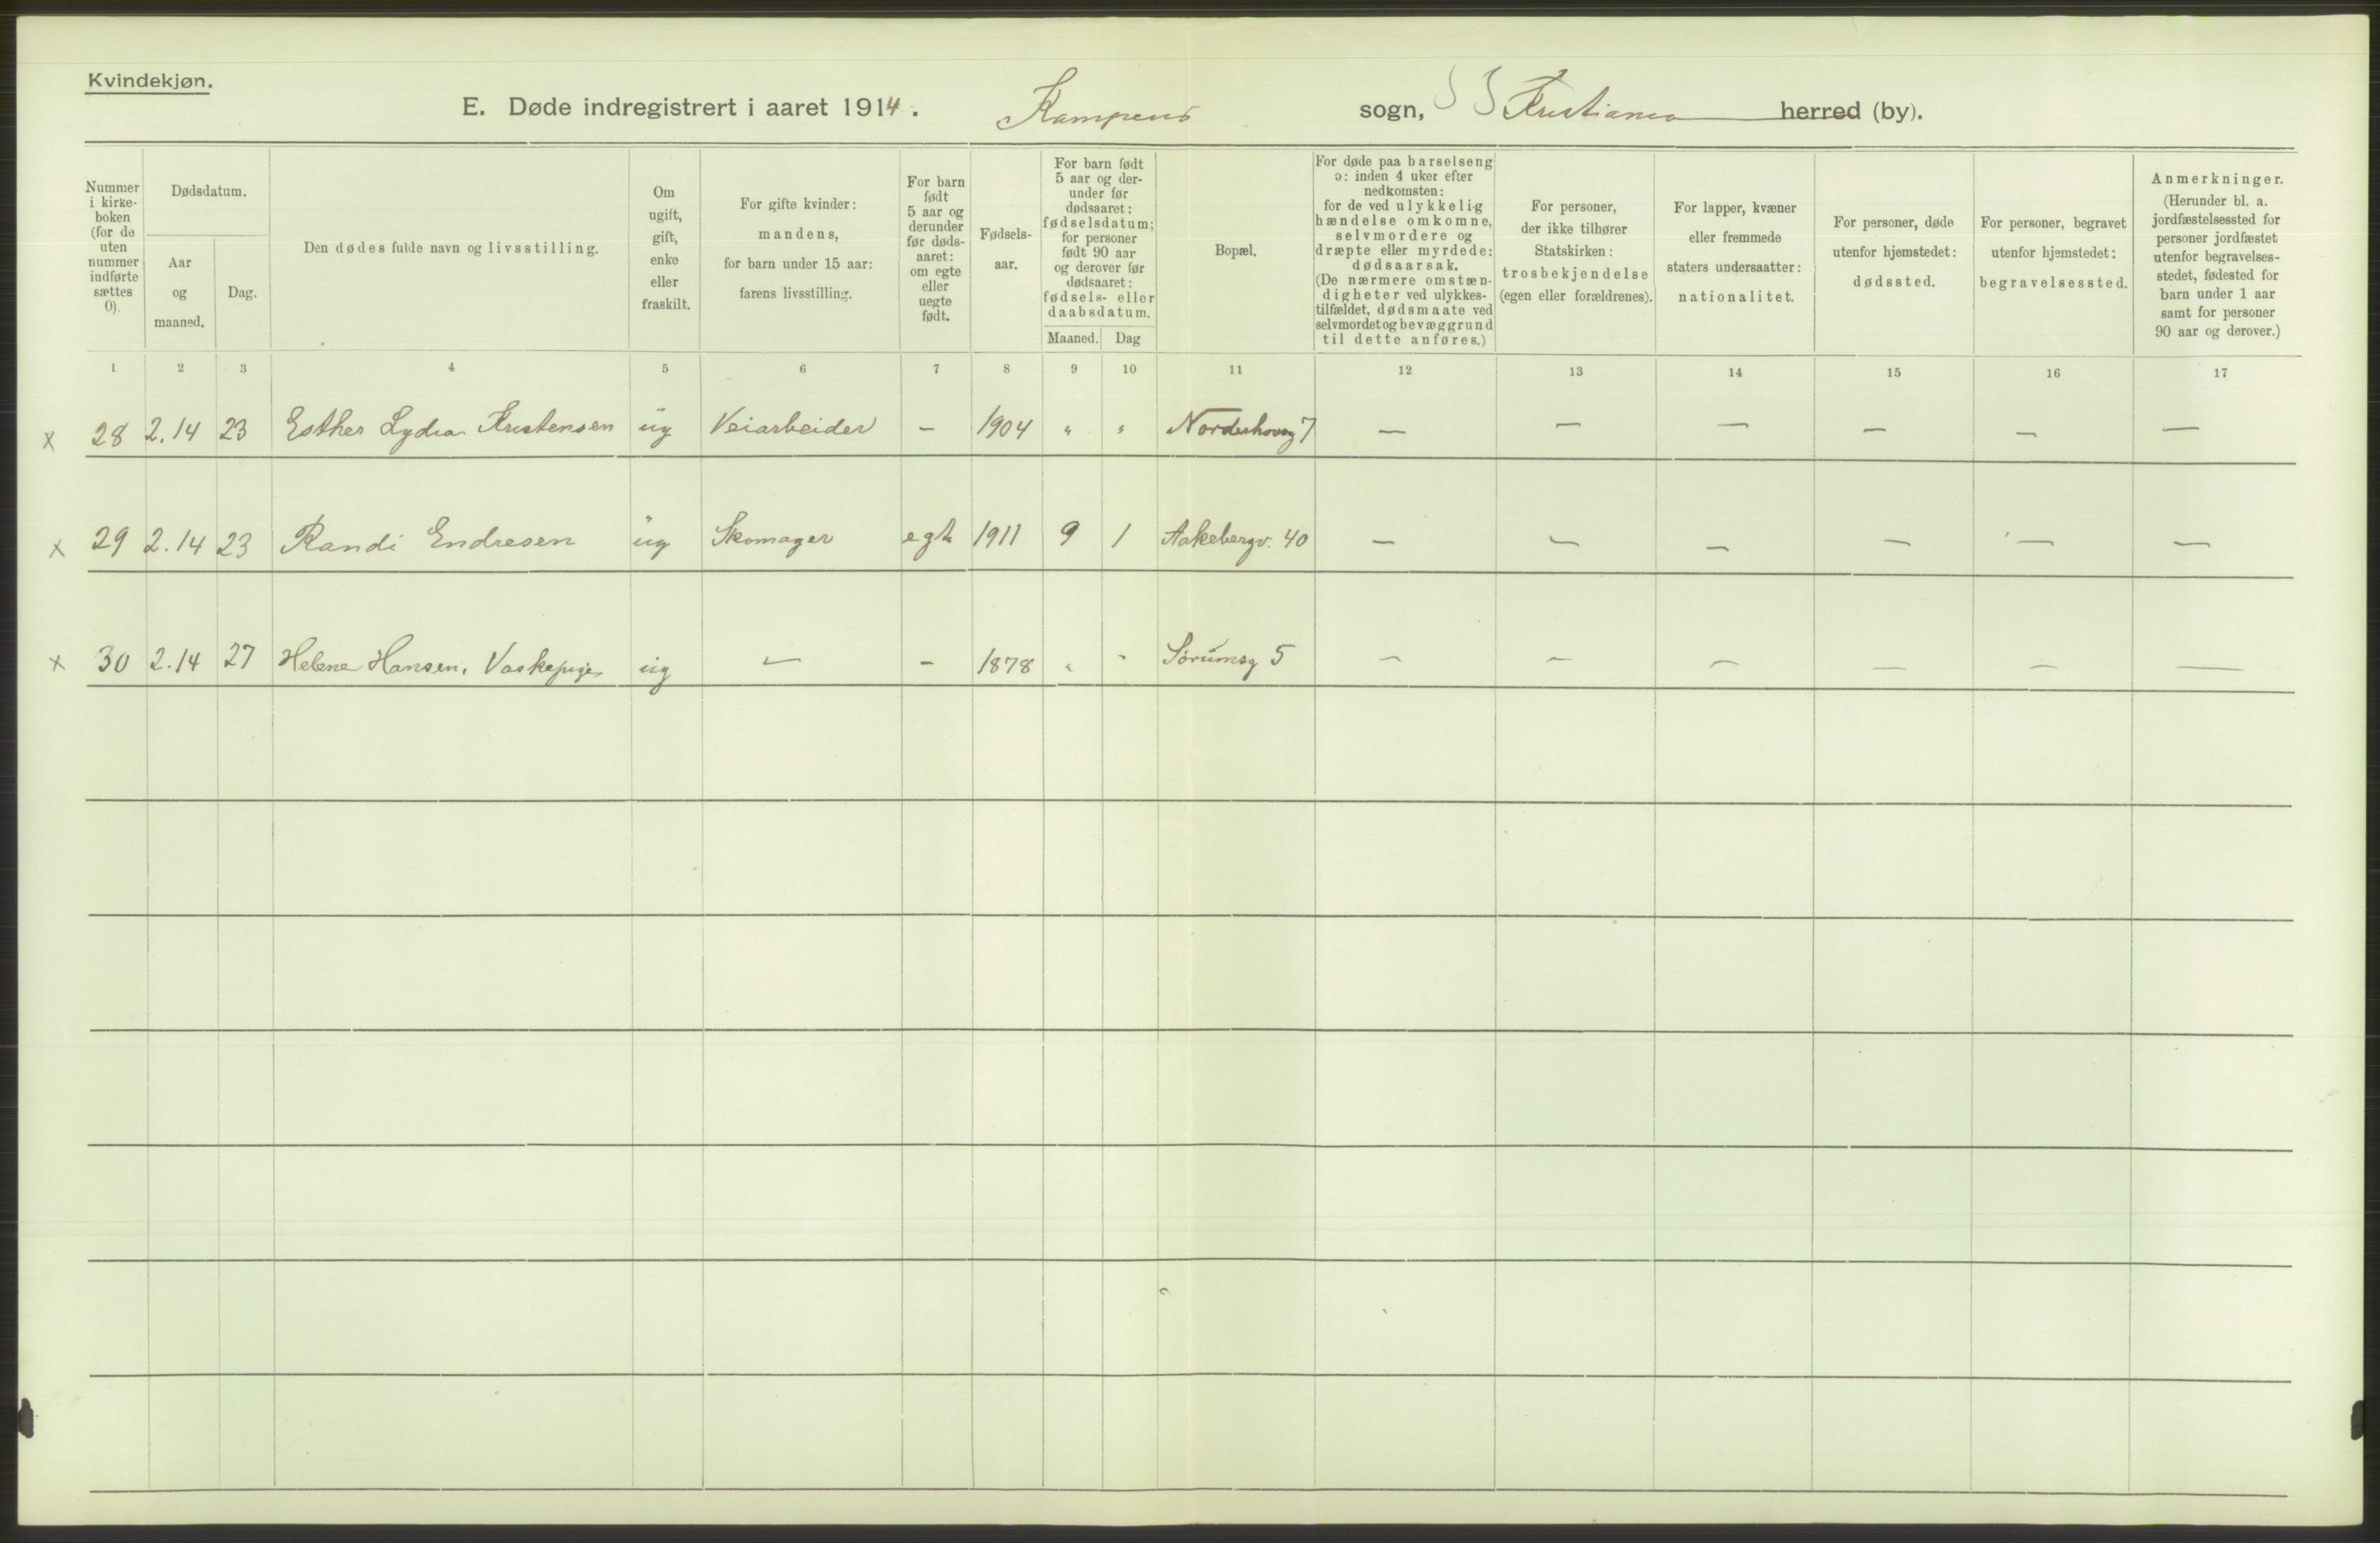 Kvindekjøn.
E. Døde indregistrert i aaret 1914. Kampens sogn, Kristiania herred (by).
Nummer i kirke-boken (for de uten nummer indførte sættes 0).
Dødsdatum.
Aar og maaned.
Dag.
Den dødes fulde navn og livsstilling.
Om ugift, gift, enke eller fraskilt.
For gifte kvinder: mandens, for barn under 15 aar: farens livsstilling.
For barn født 5 aar og derunder før døds-aaret: om egte eller uegte født.
Fødsels-aar.
For barn født 5 aar og der-under før dødsaaret: fødselsdatum; for personer født 90 aar og derover før dødsaaret: fødsels- eller daabsdatum.
Maaned. Dag
Bopæl.
For døde paa barselseng ɔ: inden 4 uker efter nedkomsten: for de ved ulykkelig hændelse omkomne, selvmordere og dræpte eller myrdede: dødsaarsak. (De nærmere omstæn-digheter ved ulykkes-tilfældet, dødsmaate ved selvmordet og bevæggrund til dette anføres.)
For personer, der ikke tilhører Statskirken: trosbekjendelse (egen eller forældrenes).
For lapper, kvæner eller fremmede staters undersaatter: nationalitet.
For personer, døde utenfor hjemstedet: dødssted.
For personer, begravet utenfor hjemstedet: begravelsessted.
Anmerkninger. (Herunder bl. a. jordfæstelsessted for personer jordfæstet utenfor begravelses-stedet, fødested for barn under 1 aar samt for personer 90 aar og derover.)
1 2 3 4 5 6 7 8 9 10 11 12 13 14 15 16 17
x 28 2.14 23 Esther Lydia Kristensen ug Veiarbeider — 1904 " " Norderhovsg 7 — — — — — —
x 29 2.14 23 Randi Endresen ug Skomager egte 1911 9 1 Aakebergv. 40 — — — — — —
x 30 2.14 27 Helene Hansen, Vaskepige ug — — 1878 " " Sørumsg 5 — — — — — —